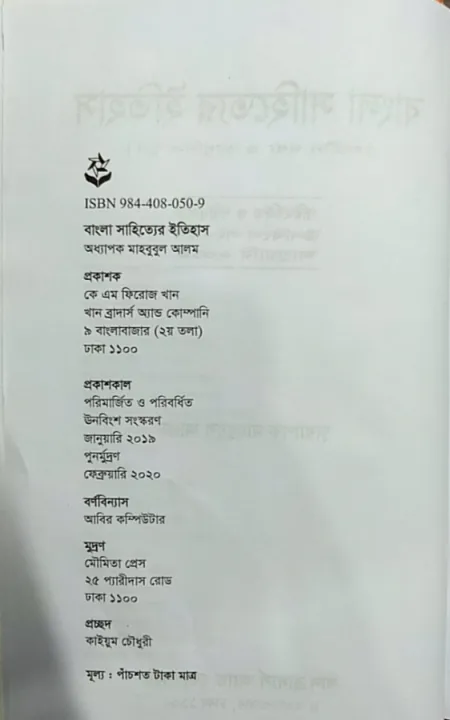 ISBN 984-408-050-9
বাংলা সাহিত্যের ইতিহাস
অধ্যাপক মাহবুবুল আলম
প্রকাশক
কে এম ফিরোজ খান
খান ব্রাদার্স অ্যান্ড কোম্পানি
৯ বাংলাবাজার (২য় তলা)
ঢাকা ১১০০
প্রকাশকাল
পরিমার্জিত ও পরিবর্ধিত
ঊনবিংশ সংস্করণ
জানুয়ারি ২০১৯
পুনর্মুদ্রণ
ফেব্রুয়ারি ২০২০
বর্ণবিন্যাস
আবির কম্পিউটার
মুদ্রণ
মৌমিতা প্রেস
২৫ প্যারীদাস রোড
ঢাকা ১১০০
প্রচ্ছদ
কাইয়ুম চৌধুরী
মূল্য : পাঁচশত টাকা মাত্র